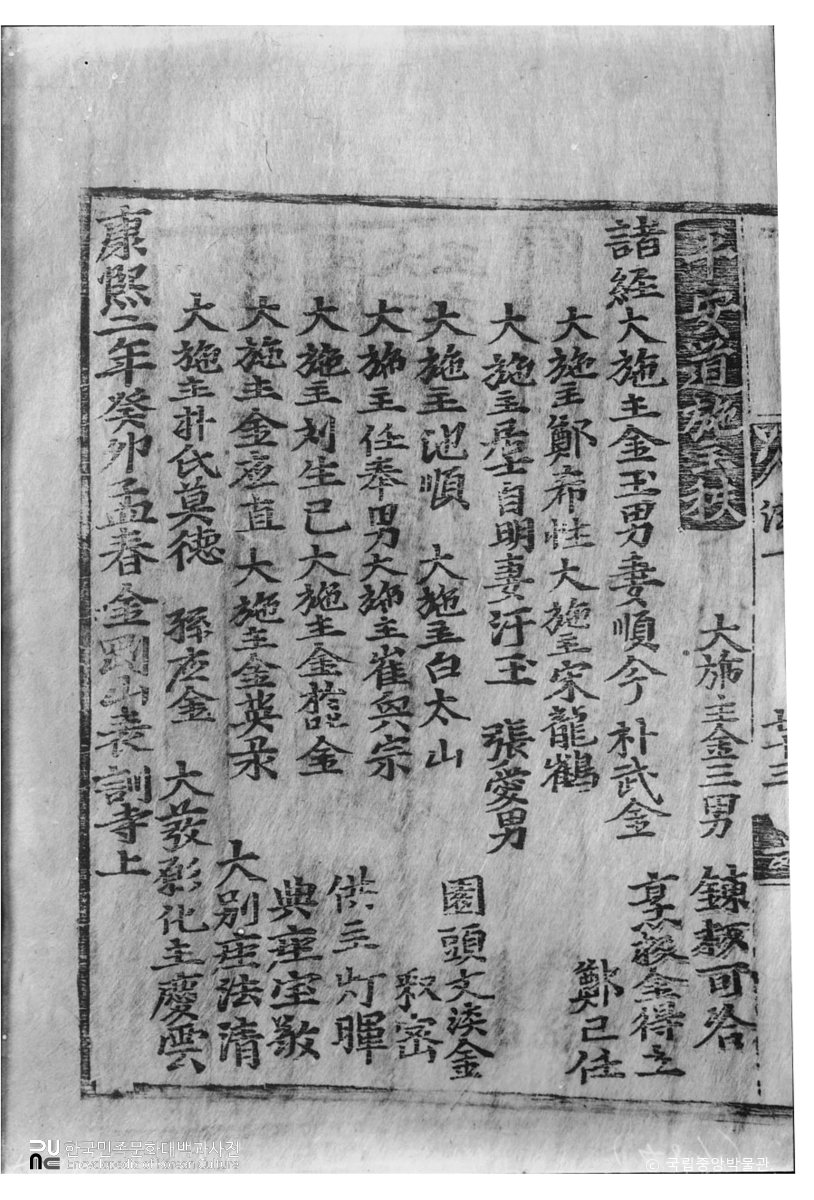 平安道施主秩
大施主金三男 鍊板可咎
諸経大施主金玉男妻順今 朴武金 烹飯金得立
大施主鄭希性 大施主宋龍鶴 鄭己任
大施主居士自明妻汗玉 張愛男
大施主池順 大施主白太山 園頭文淡金
釈密
大施主任奉男 大施主崔興宗 供主灯暉
大施主刘生已 大施主金 金 典座宝敬
大施主金应直 大施主金英彔 大别座法清
大施主朴氏莫德 孫应金 大發彰化主慶雲
康熙二年癸卯孟春金剛山表訓寺上
한국민족문화대백과사전
Encyclopedia of Korean Culture
© 국립중앙박물관